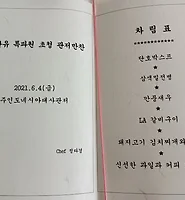 특파원 초청 관저만찬
2021.6.4(금)
주인도네시아대사관저
Chef
차림표
단호박스프
★
삼색밀전병
★
만둣새우
★
LA 갈비구이
★
돼지고기 김치찌개와
★
신선한 과일과 커피